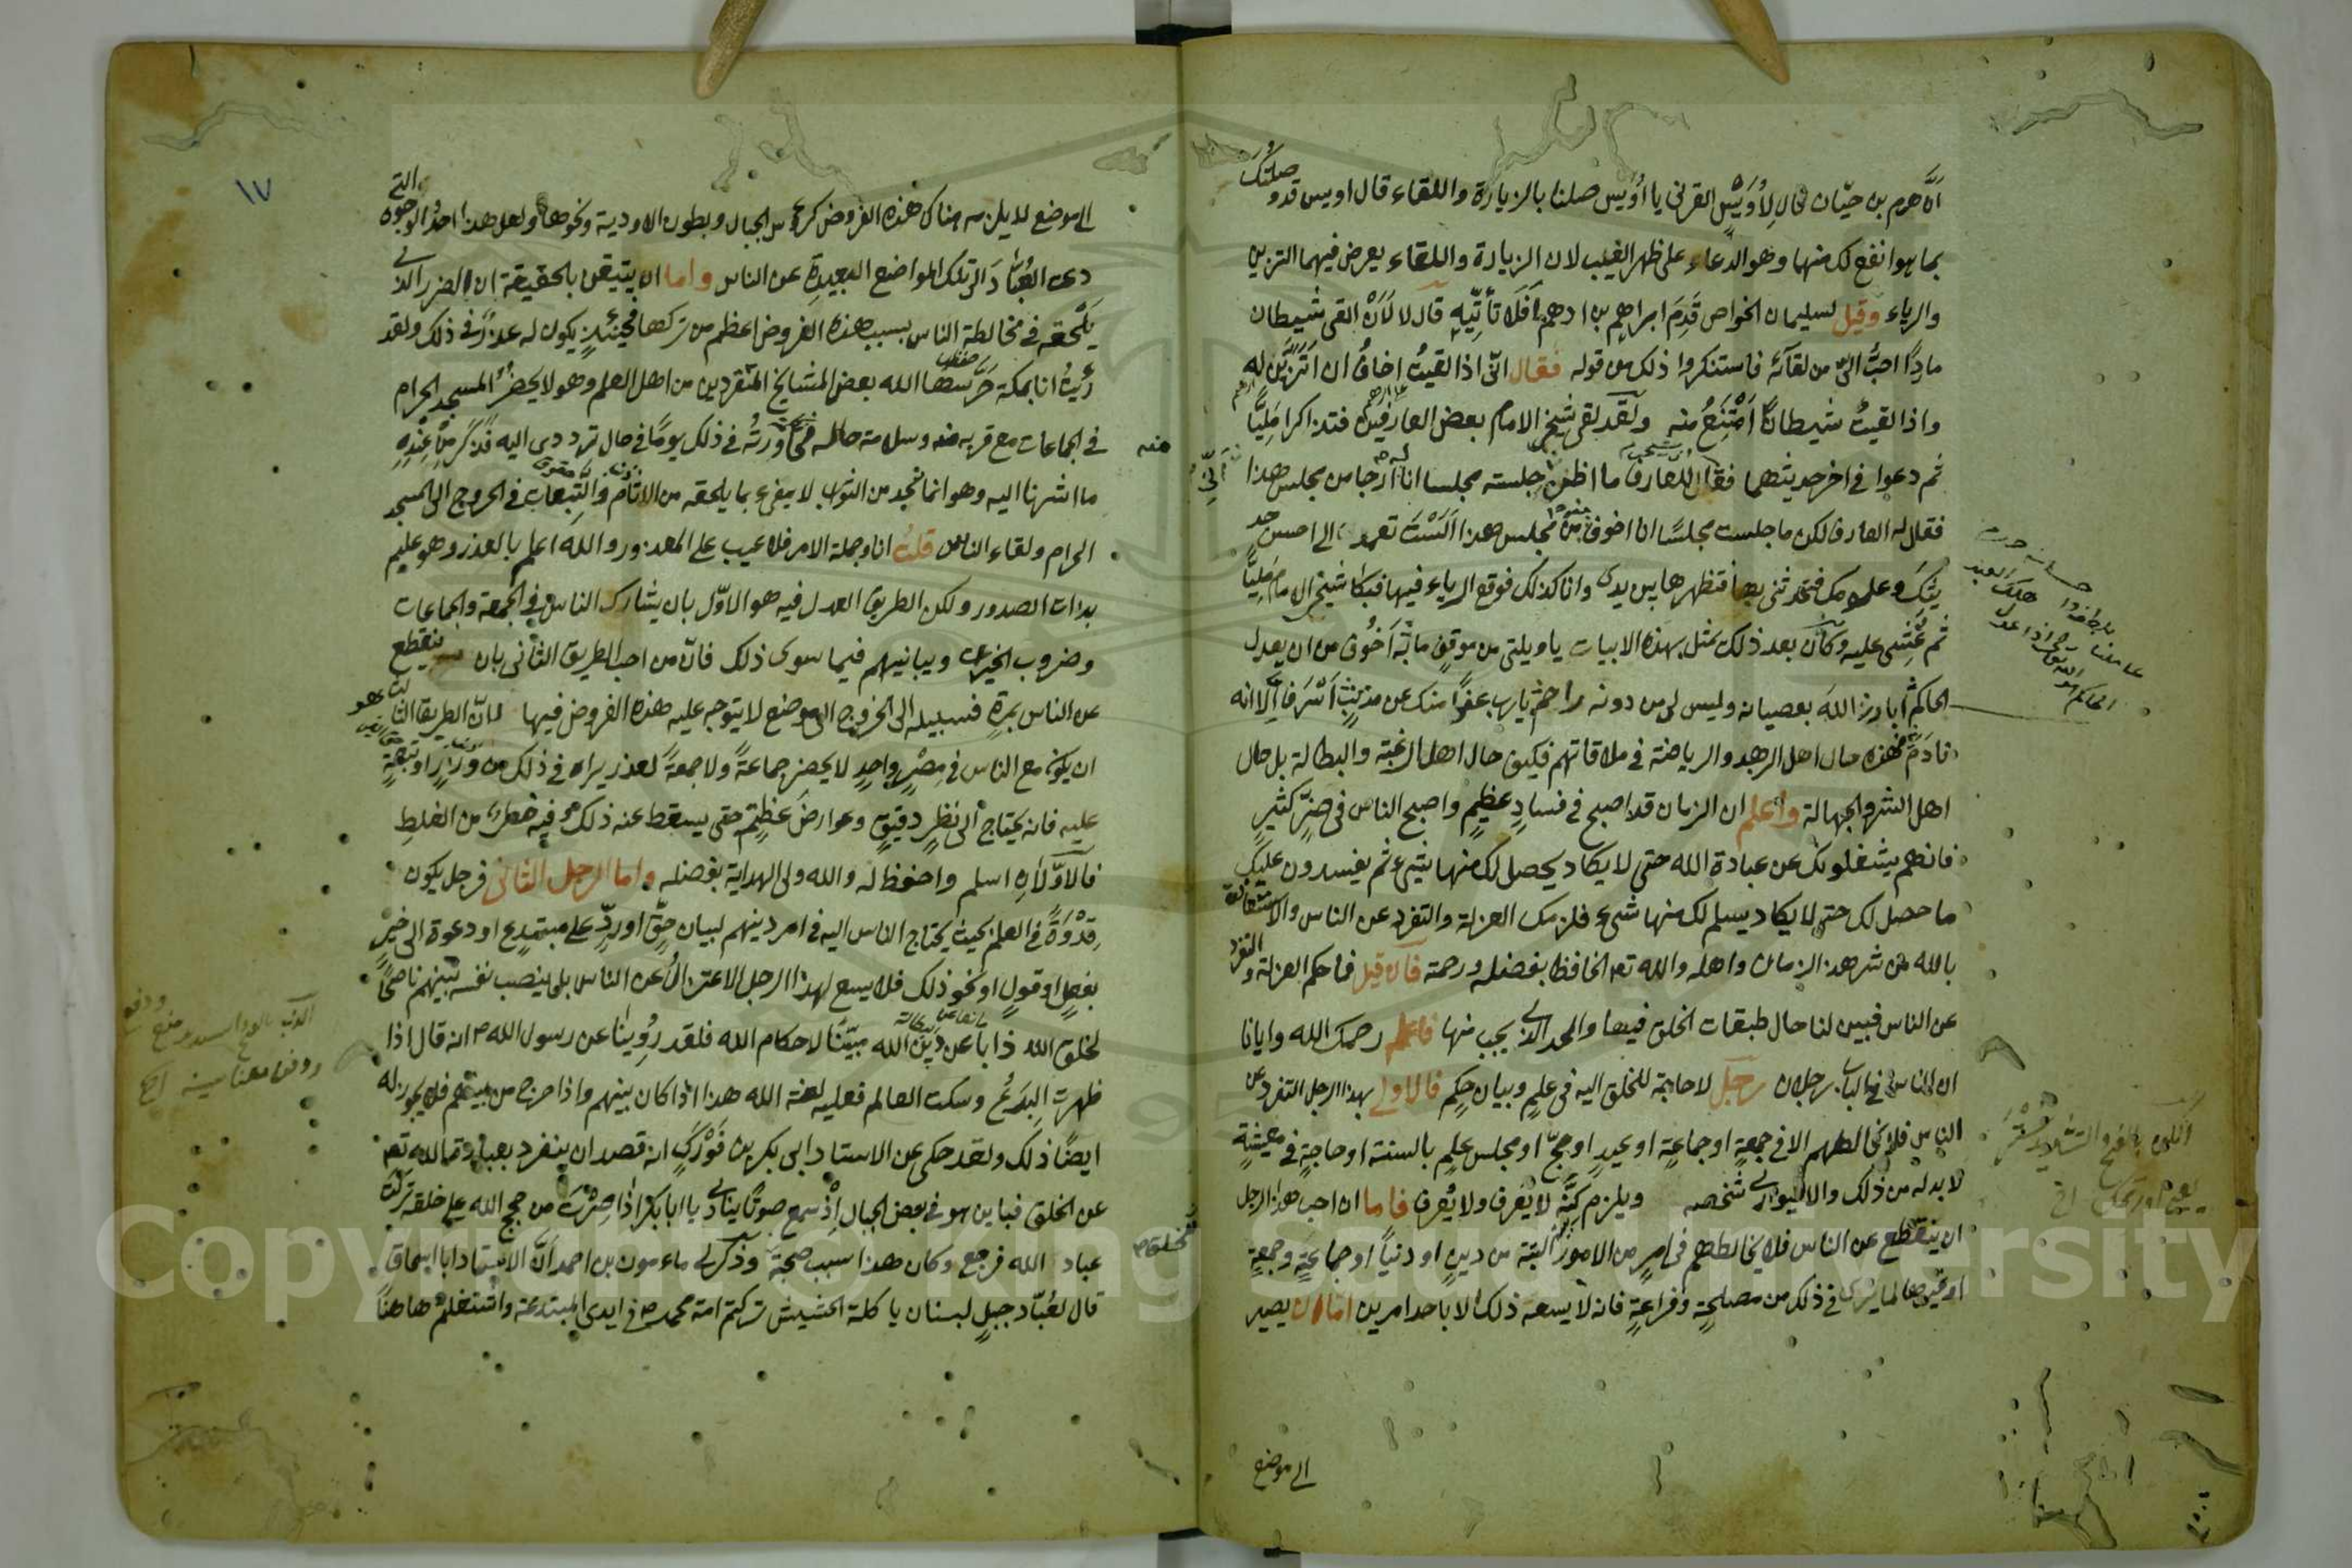 ان هرم بن حيّان قال لِأُوَيْسٍ القرنى يا اُوَيس صلنا بالزيارة واللقاء قال اويس قد وصلتكَ
بما هو انفع لك منها وهو الدعاء على ظهر الغيب لان الزيارة واللقاء يعرض فيهما التزين
والرياء وقيل لسليمان الخواص قَدِمَ ابراهيم بن ادهم اَفَلَا تأتِيهِ قال لا لَأَنْ القى شيطان
مارِدًا احبُّ الىّ من لقائه فاستنكروا ذلك من قوله فقال انّى اذا لقيتُ اخافُ ان اَتَزيَّن له
واذا لقيتُ شيطانًا اَمْتَنِعُ منه ولقد لقى شيخى الامام بعض العارفين فتذاكرا مَلِيًّا
ثم دعوا فى اخر حديثهما فقال للعارف ما اظن جلسته مجلسا انا ارجا من مجلس هذا
فقال له العارف لكن ما جلست مجلسًا انا اخوف من مجلس هذا اَلَسْتَ تعمد الى احسن حد
يثكَ وعلومك فتحدثنى بها فتظهرها بين يدى وانا كذلك فوقع الرياء فيها فبكا شيخى الامام مَلِيًّا
ثم غُشِىَ عليه وكان بعد ذلك تمثل بهذه الابيات يا ويلتى من موقفٍ ما به اَخوُفُ من ان يعدل
الحاكم اُبارزُ اللهَ بعصيانه وليس لى من دونه راحم يا رب عفوًا منك عن مذنبٍ اَسْرَفَ اِلّا انه
نادَم فهذه حال اهل الزهد والرياضة فى ملاقاتهم فكيف حال اهل الرغبة والبطالة بل حال
اهل الشر والجهالة واعلم ان الزمان قد اصبح فى فسادٍ عظيمٍ واصبح الناس فى ضرٍّ كثيرٍ
فانهم يشغلونك عن عبادة الله حتى لا يكاد يحصل لك منها شئ ثم يفسدون عليك
ما حصل لك حتى لا يكاد يسلم لك منها شىء فلزمك العزلة والتفرد عن الناس والاستعاذة
بالله من شر هذا الزمان واهله والله تعه الحافظ بفضله ورحمته فان قيل فما حكم العزلة والتفرد
عن الناس فبين لنا حال طبقات الخلق فيها والحد الذى يجب منها فاعلم رحمك الله وايانا
ان الناس فى الباب رجلان رجل لا حاجة للخلق اليه فى علمٍ وبيان حكمٍ فالاولى بهذا الرجل التفرد عن
الناس فلا يخالطهم الا فى جمعةٍ او جماعةٍ او عيدٍ او حجٍّ او مجلس علمٍ بالسنة او حاجةٍ فى معيشةٍ
لا بد له من ذلك والا فليوارى شخصه ويلزم كِنَّه لا يَعرف ولا يُعرف فاما ان احب هذا الرجل
ان ينقطع عن الناس فلا يخالطهم فى امرٍ من الامور البتة من دينٍ او دنياً او جماعةٍ وجمعةٍ
او غيرها لما يَرى فى ذلك من مصلحةٍ وفراغةٍ فانه لا يسعه ذلك الا باحد امرين اما ان يصير
الى موضع
١٧
الى موضع لا يلزمه هناك هذه الفروض كرؤس الجبال وبطون الاودية ونحوها ولعل هذا احدُ الوجوه التى
دعى العُبّادَ الى تلك المواضع البعيدةِ عن الناس واما ان يتيقن بالحقيقة ان الضرر الذى
يَلْحقه فى مخالطة الناس بسبب هذه الفروض اعظم من تركها فحينئذٍ يكون له عذرٌ فى ذلك ولقد
رئيتُ انا بمكة حَرَّسها الله بعض المشايخ المتفردين من اهل العلم وهو لا يحضرُ المسجد الحرام
فى الجماعات مع قربه منه وسلامة حاله فحاورتُه فى ذلك يومًا فى حال ترددى اليه فذكر مِنْ عُذْرِهِ
ما اشرنا اليه وهو انما نجد من الثواب لا يفىء بما يلحقه من الاثام والتبعات فى الخروج الى المسجد
الحرام ولقاء الناس قلت انا وجملة الامر فلا عيب على المعذور والله اعلم بالعذر وهو عليم
بذات الصدور ولكن الطريق العدل فيه هو الاوّل بان يشارك الناس فى الجمعة والجماعات
وضروب الخيرات ويباينهم فيما سوى ذلك فانّ من احب الطريق الثانى بان ينقطع
عن الناس بمرةٍ فسبيله الى الخروج الى موضع لا يتوجه عليه هذه الفروض فيها فانّ الطريق الثالث هو
ان يكون مع الناس فى مصرٍ واحدٍ لا يحضر جماعةً ولا جمعةً لعذر يراه فى ذلك من وِزْرٍ او تبعةٍ
عليه فانه يحتاج الى نظرٍ دقيقٍ وعوارض عظيم حتى يسقط عنه ذلك وفيه خطر من الغلطِ
فالاوّلان اسلم واحفظ له والله ولى الهداية بفضله واما الرجل الثانى فرجل يكون
قدْوَةً فى العلم بحيث يحتاج الناس اليه فى امر دينهم لبيان حقٍّ او ردٍّ على مبتدعٍ او دعوة الى خيرٍ
بفعلٍ او قولٍ او نحو ذلك فلا يسع لهذا الرجل الاعتزالُ عن الناس بلى ينصب نفسه بينهم ناصحًا
لخلق الله ذابا عن دين الله مبيّنا لاحكام الله فلقد رُوِينا عن رسول الله ص انه قال اذا
ظهرت البِدَعُ وسكت العالم فعليه لعنة الله هذا اذا كان بينهم واذا خرج من بينهم فلا يجوز له
ايضًا ذلك ولقد حكى عن الاستاد ابى بكر بن فَوْرَكٍ انه قصد ان ينفرد بعبادة الله تعه
عن الخلق فبا ين هو فى بعض الجبال اِذْ سمع صوتًا ينادى يا ابا بكر اذا صِرْتَ من حجج الله على خلقه تركت
عباد الله فرجع وكان هذا سبب صحبة وذكر لى مأمون بن احمد اَنَّ الاستاد ابا اسحاق
قال لعُبّاد جبلٍ لبنان يا كلة الحشيش تركتم امة محمد ص فى ايدى المبتدعة واشتغلتم هاهنا